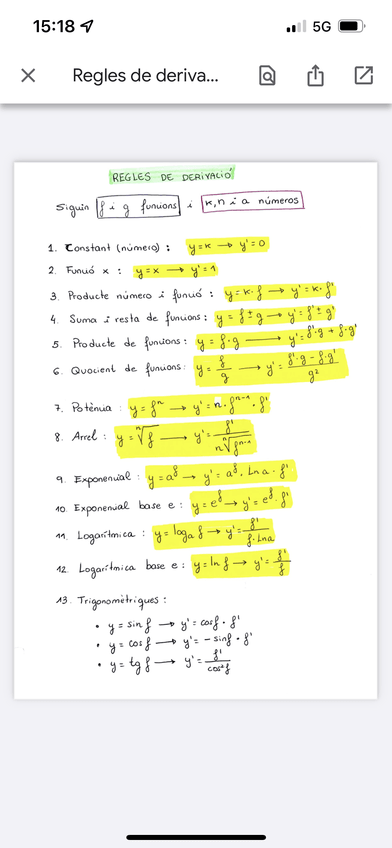 15:18
5G
Regles de deriva...
REGLES DE DERIVACIÓ
Siguin f i g funcions i k, n i a números
1. Constant (número) : y=k → y'=0
2. Funció x : y=x → y'=1
3. Producte número i funció : y=k·f → y'=k·f'
4. Suma i resta de funcions : y=f±g → y'=f'±g'
5. Producte de funcions : y=f·g → y'=f'·g+f·g'
6. Quocient de funcions : y=f/g → y'=(f'·g-f·g')/g²
7. Potència : y=fⁿ → y'=n·fⁿ⁻¹·f'
8. Arrel : y=ⁿ√f → y'=f'/(n ⁿ√fⁿ⁻¹)
9. Exponencial : y=a^f → y'=a^f·Ln a·f'
10. Exponencial base e : y=e^f → y'=e^f·f'
11. Logarítmica : y=logₐ f → y'=f'/(f·Lna)
12. Logarítmica base e : y=ln f → y'=f'/f
13. Trigonomètriques :
• y=sinf → y'=cosf·f'
• y=cosf → y'=-sinf·f'
• y=tgf → y'=f'/cos²f